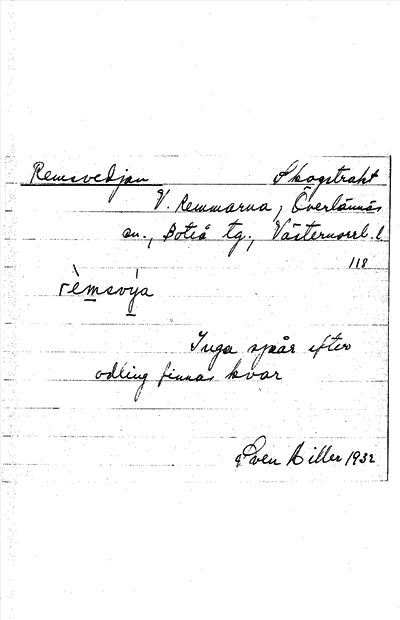 Remsvedjan Skogstrakt
V. Remmarna, Överlännäs
sn., Boteå tg., Västernorrl. l
118
rèmsvýa
Inga spår efter
odling finnas kvar
Sven Hiller 1932